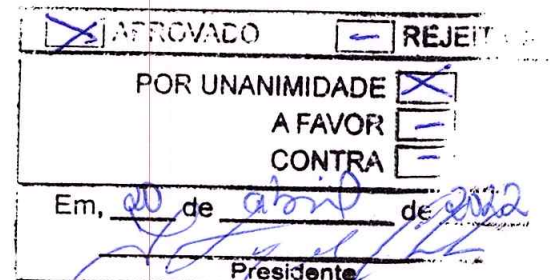 APROVADO REJEIT
POR UNANIMIDADE
A FAVOR -
CONTRA -
Em, 20 de abril de 2022
Presidente